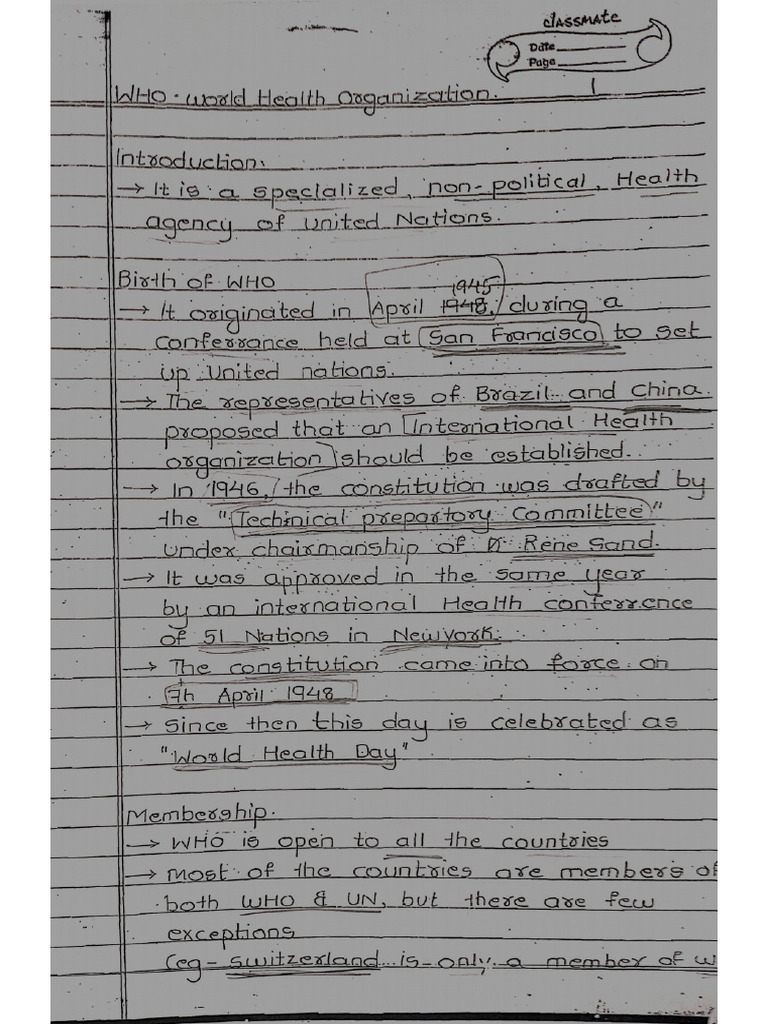 classmate
Date
Page
1
WHO - World Health Organization.
Introduction:
→ It is a specialized, non-political, Health
agency of united Nations.
Birth of WHO
1945
→ It originated in April 1948, during a
conferrance held at San Francisco to set
up United nations.
→ The representatives of Brazil and China
proposed that an International Health
organization should be established.
→ In 1946, the constitution was drafted by
the "Techinical prepartory Committee"
under chairmanship of Dr Rene Sand.
→ It was approved in the same year
by an international Health conferrence
of 51 Nations in Newyork.
→ The constitution came into force on
7th April 1948
→ Since then this day is celebrated as
"World Health Day"
Membership.
→ WHO is open to all the countries
→ Most of the countries are members of
both WHO & UN, but there are few
exceptions
(eg - switzerland is only a member of W